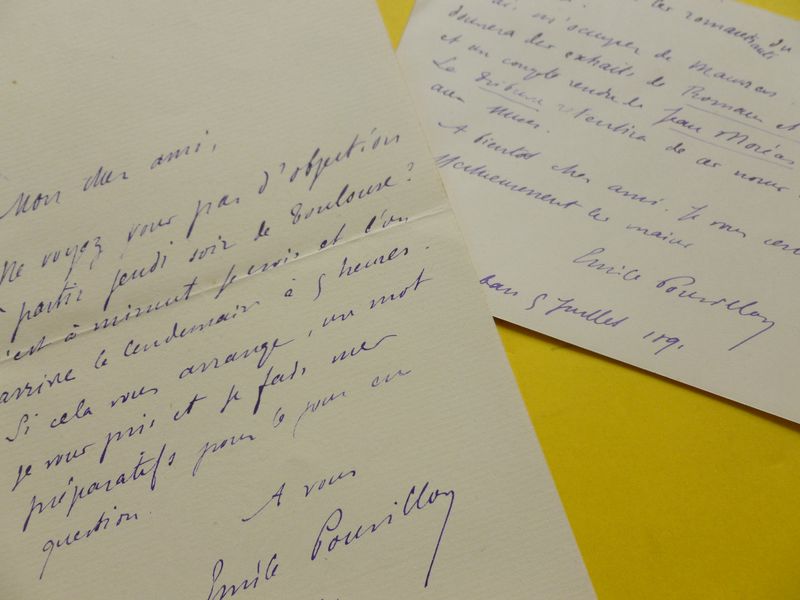 Mon cher ami,
Ne voyez vous pas d'objection
à partir jeudi soir de Toulouse ?
c'est à minuit je crois et l'on
arrive le lendemain à 5 heures.
Si cela vous arrange, un mot
je vous prie et je fais mes
préparatifs pour le jour en
question.
A vous
Emile Pouvillon
les romantiques du
m'occuper de Maurras.
donnera des extraits de Romain et
et un compte rendu de Jean Moréas
La Tribune retentira de ces noms
aux
A bientôt cher ami. Je vous serre
affectueusement les mains
Emile Pouvillon
5 Juillet 1891